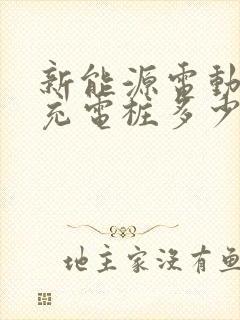 新能源電動
充電桩多少
地主家没有鱼